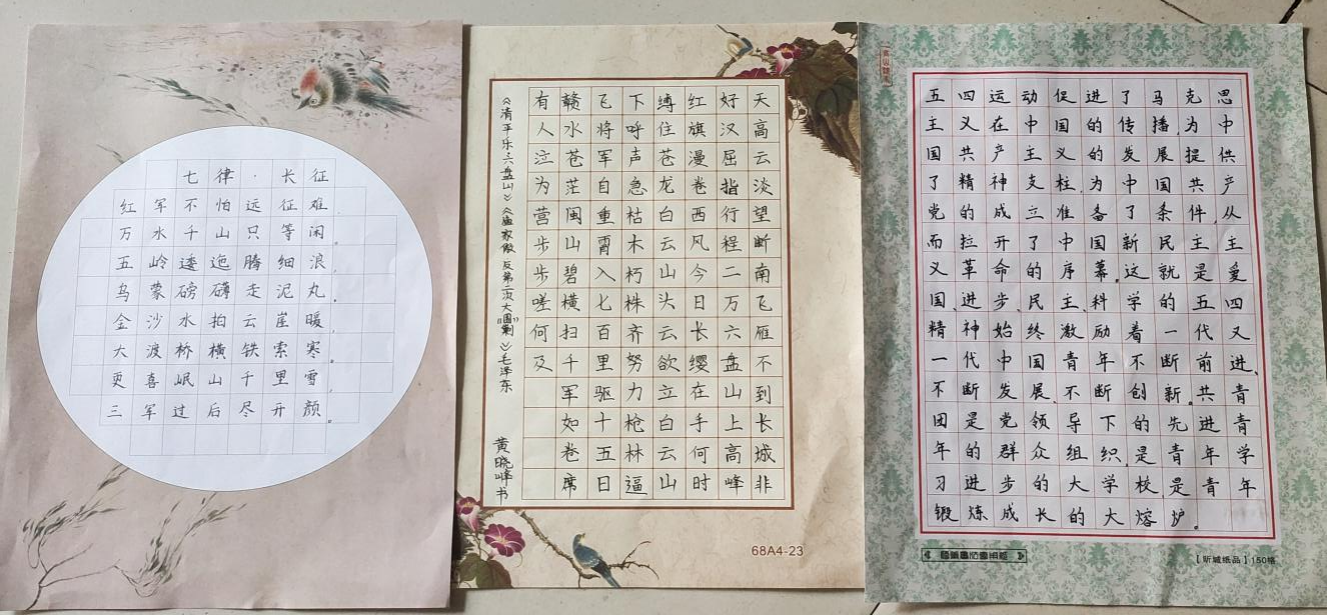 七律·长征
红军不怕远征难
万水千山只等闲。
五岭逶迤腾细浪
乌蒙磅礴走泥丸。
金沙水拍云崖暖
大渡桥横铁索寒。
更喜岷山千里雪
三军过后尽开颜。
天高云淡望断南飞雁不到长城非
好汉屈指行程二万六盘山上高峰
红旗漫卷西风今日长缨在手何时
缚住苍龙白云山头云欲立白云山
下呼声急枯木朽株齐努力枪林逼
飞将军自重霄入七百里驱十五日
赣水苍茫闽山碧横扫千军如卷席
有人泣为营步步嗟何及
《清平乐·六盘山》《渔家傲 反第二次大"围剿"》毛泽东
黄晓峰书
68A4-23
五四运动促进了马克思
主义在中国的传播,为中
国共产主义的发展提供
了精神支柱,为中国共产
党的成立准备了条件,从
而拉开了中国新民主主
义革命的序幕,这就是爱
国、进步、民主、科学的五四
精神始终激励着一代又
一代中国青年不断前进、
不断发展、不断创新。共青
团是党领导下的先进青
年的群众组织,是青年学
习进步的大学校是青年
锻炼成长的大熔炉。
【昕城纸品】150格